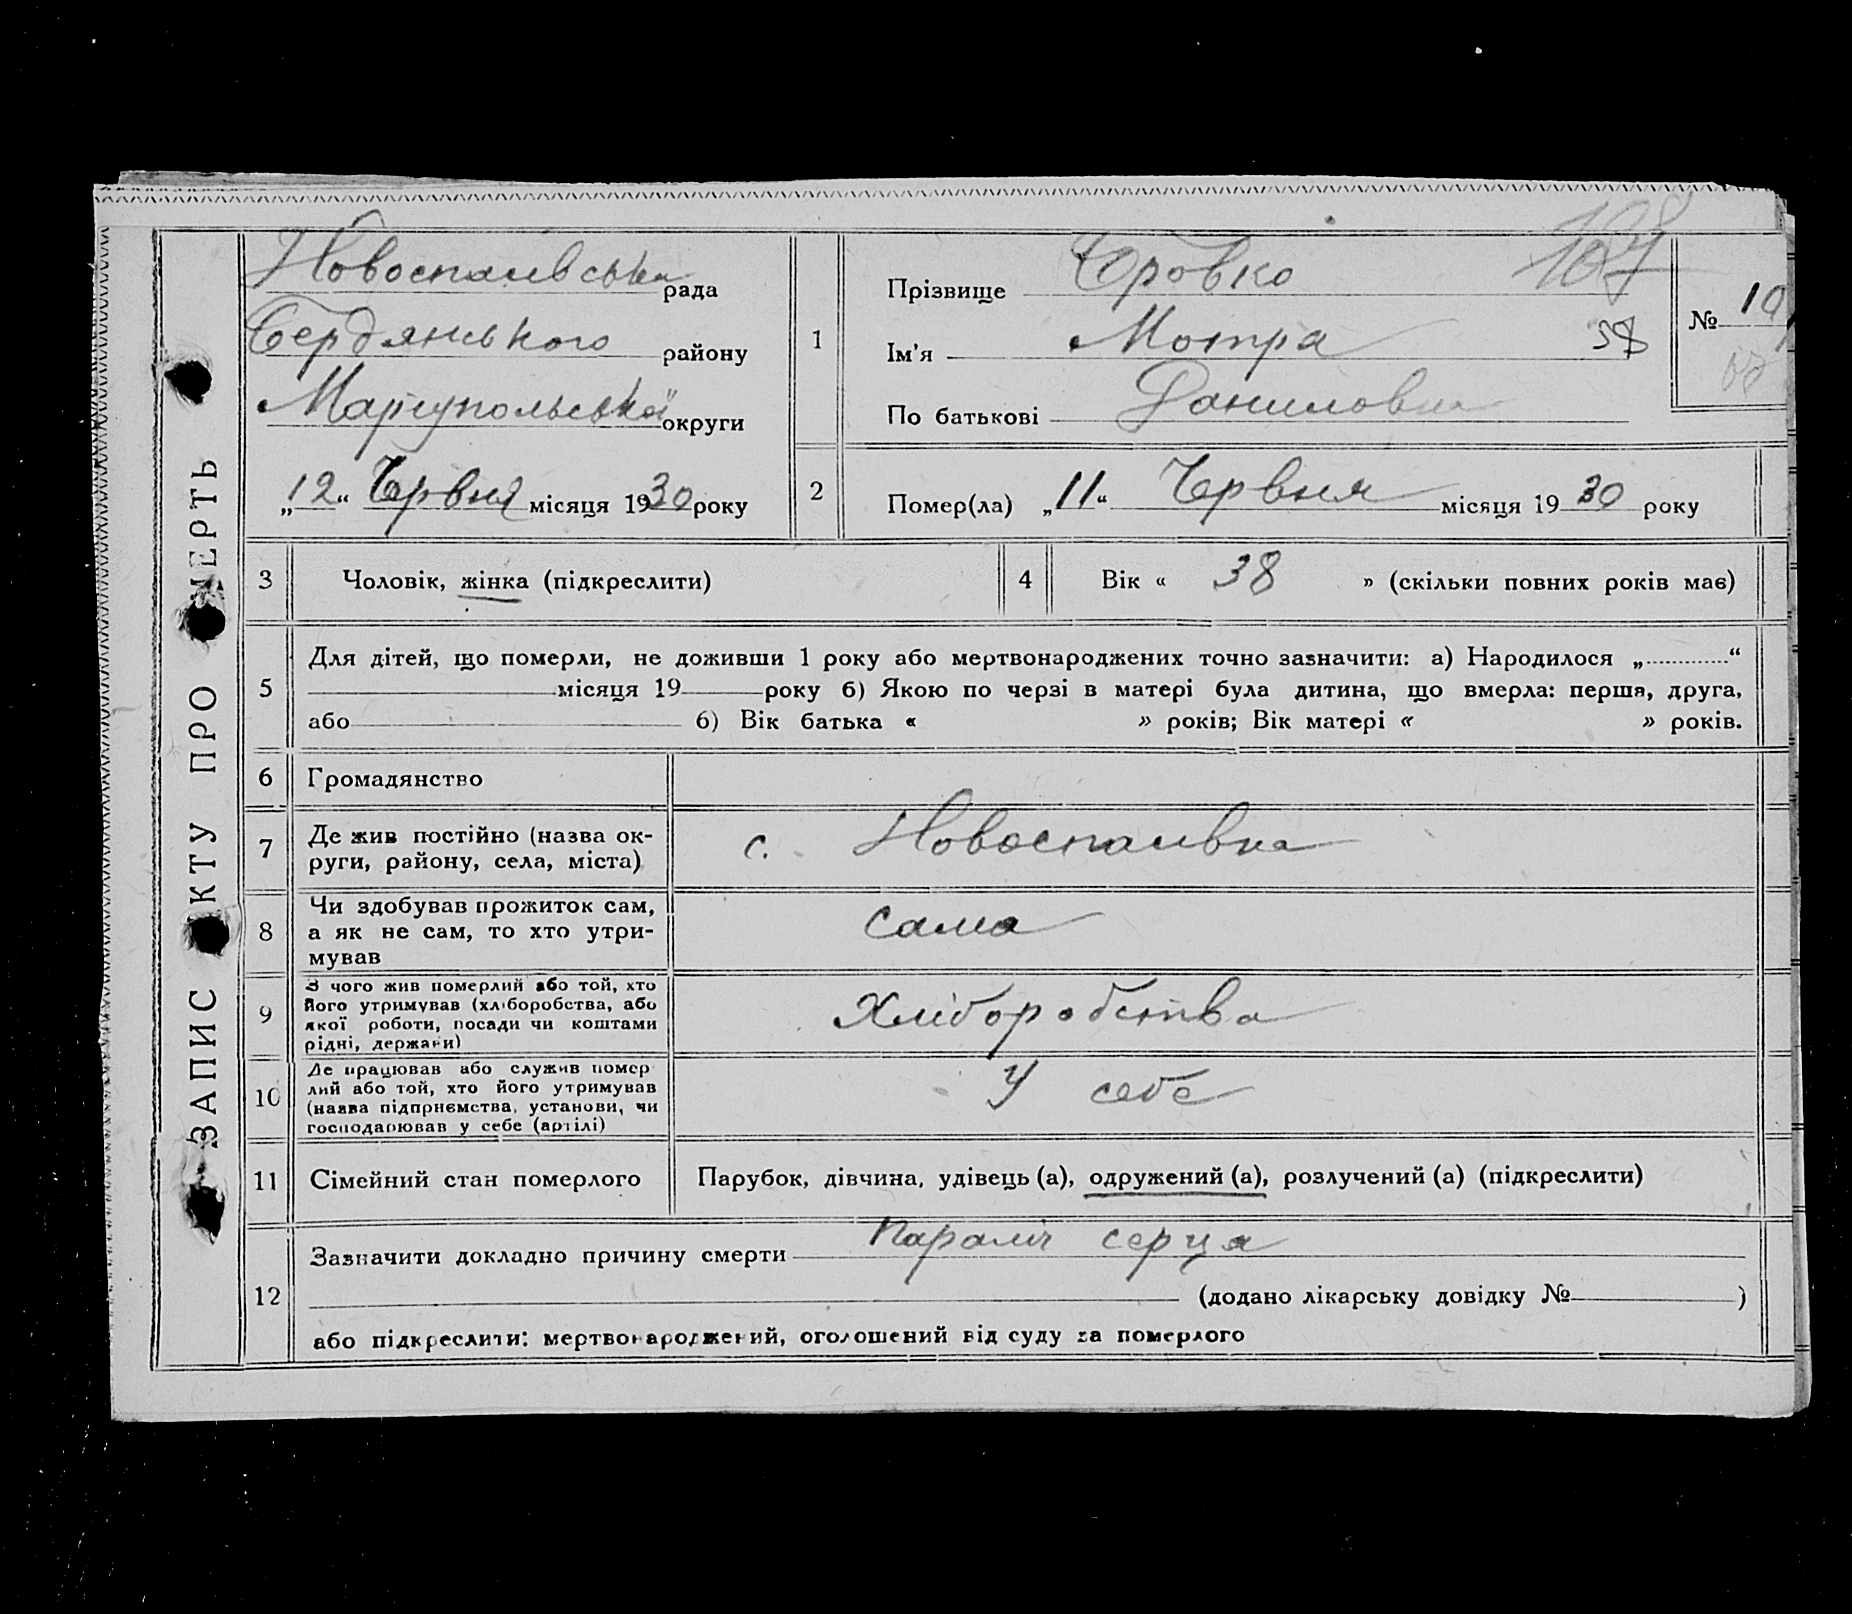 ЗАПИС АКТУ ПРО СМЕРТЬ
Новоспаївська рада
Бердянського району
Маріупольської округи
„12“ Червня місяця 1930 року
1
Прізвище
Ім'я Мотря 38
По батькові Даниловна
№ 10
2
Помер(ла) „11“ Червня місяця 1930 року
3 Чоловік, жінка (підкреслити)
4 Вік « 38 » (скільки повних років має)
5
Для дітей, що померли, не доживши 1 року або мертвонароджених точно зазначити: а) Народилося „ “
місяця 19 року б) Якою по черзі в матері була дитина, що вмерла: перша, друга,
або б) Вік батька « » років; Вік матері « » років.
6 Громадянство
7 Де жив постійно (назва ок-
руги, району, села, міста)
с. Новоспаївка
8 Чи здобував прожиток сам,
а як не сам, то хто утри-
мував
Сама
9 З чого жив померлий або той, хто
його утримував (хліборобства, або
якої роботи, посади чи коштами
рідні, держави)
Хліборобства
10 Де працював або служив помер
лий або той, хто його утримував
(назва підприємства, установи, чи
господарював у себе (артілі)
У себе
11 Сімейний стан померлого
Парубок, дівчина, удівець (а), одружений (а), розлучений (а) (підкреслити)
12
Зазначити докладно причину смерти Параліч серця
(додано лікарську довідку № )
або підкреслити: мертвонароджений, оголошений від суду за померлого